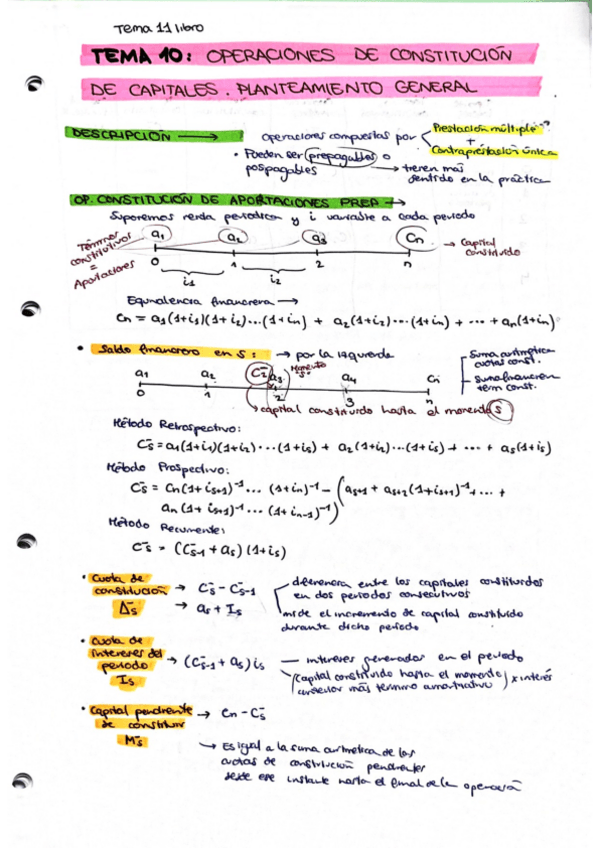 Tema 11 libro
TEMA 10: OPERACIONES DE CONSTITUCIÓN
DE CAPITALES. PLANTEAMIENTO GENERAL
DESCRIPCIÓN → operaciones compuestas por < Prestación múltiple
+
Contraprestación única
• Pueden ser prepagables o
pospagables → tienen más
sentido en la práctica
OP. CONSTITUCIÓN DE APORTACIONES PREP →
Suponemos renta periódica y i variable a cada periodo
Términos
constitutivos
=
Aportaciones
a1 a2 a3 Cn → Capital
constituido
0 1 2 n
i1 i2
Equivalencia financiera →
Cn = a1(1+i1)(1+i2)...(1+in) + a2(1+i2)...(1+in) + ... + an(1+in)
• Saldo financiero en S: → por la izquierda
Suma aritmética
cuotas const.
Suma financiera
term const.
a1 a2 C2⁻ a3 Momento S a4 Cn
0 1 2 3 n
→ capital constituido hasta el momento S
Método Retrospectivo:
Cs⁻ = a1(1+i1)(1+i2)...(1+is) + a2(1+i2)...(1+is) + ... + as(1+is)
Método Prospectivo:
Cs⁻ = Cn(1+is+1)⁻¹... (1+in)⁻¹ - (as+1 + as+2(1+is+1)⁻¹ + ... +
an(1+is+1)⁻¹... (1+in-1)⁻¹)
Método Recurrente:
Cs⁻ = (Cs-1⁻ + as)(1+is)
• Cuota de
constitución
Δs
→ Cs⁻ - Cs-1⁻
→ as + Is
diferencia entre los capitales constituidos
en dos periodos consecutivos
mide el incremento de capital constituido
durante dicho periodo
• Cuota de
intereses del
periodo
Is
→ (Cs-1⁻ + as) is — intereses generados en el periodo
(Capital constituido hasta el momento
anterior más termino amortrativo) x interés
• Capital pendiente
de constituir
Ms⁻
→ Cn - Cs⁻
→ Es igual a la suma aritmética de las
cuotas de constitución pendientes
desde ese instante hasta el final de la operación